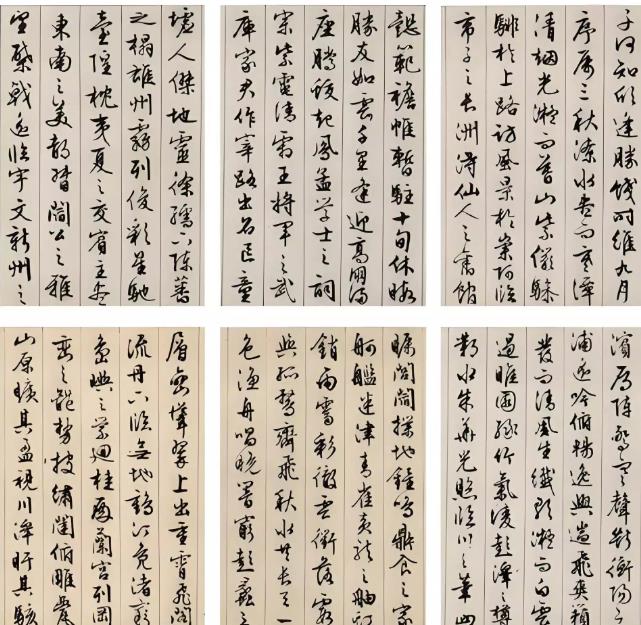 墟人傑地靈徐孺下陳蕃
之榻雄州霧列俊彩星馳
臺隍枕夷夏之交賓主盡
東南之美都督閻公之雅
望棨戟遙臨宇文新州之
懿範襜帷暫駐十旬休暇
勝友如雲千里逢迎高朋滿
座騰蛟起鳳孟學士之詞
宗紫電清霜王將軍之武
庫家君作宰路出名區童
子何知躬逢勝餞時維九月
序屬三秋潦水盡而寒潭
清烟光凝而暮山紫儼驂
騑於上路訪風景於崇阿臨
帝子之長洲得仙人之舊館
層巒聳翠上出重霄飛閣
流丹下臨無地鶴汀鳧渚窮
島嶼之縈迴桂殿蘭宮列岡
巒之體勢披繡闥俯雕甍
山原曠其盈視川澤盱其駭
矚閭閻撲地鐘鳴鼎食之家
舸艦迷津青雀黃龍之舳
銷雨霽彩徹雲衢落霞
與孤鶩齊飛秋水共長天一
色漁舟唱晚響窮彭蠡之
濱雁陣驚寒聲斷衡陽之
浦遙吟俯暢逸興遄飛爽籟
發而清風生纖歌凝而白雲
遏睢園綠竹氣凌彭澤之樽
鄴水朱華光照臨川之筆四